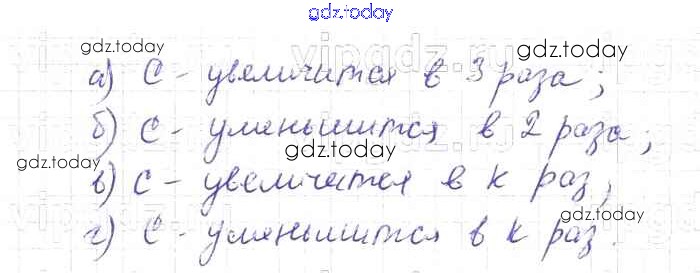 gdz.today
gdz.today
vipgdz.ru
gdz.today
а) С - увеличится в 3 раза;
gdz.today
б) С - уменьшится в 2 раза;
gdz.today
gdz.today
в) С - увеличится в k раз;
gdz.today
г) С - уменьшится в k раз.
gdz.today